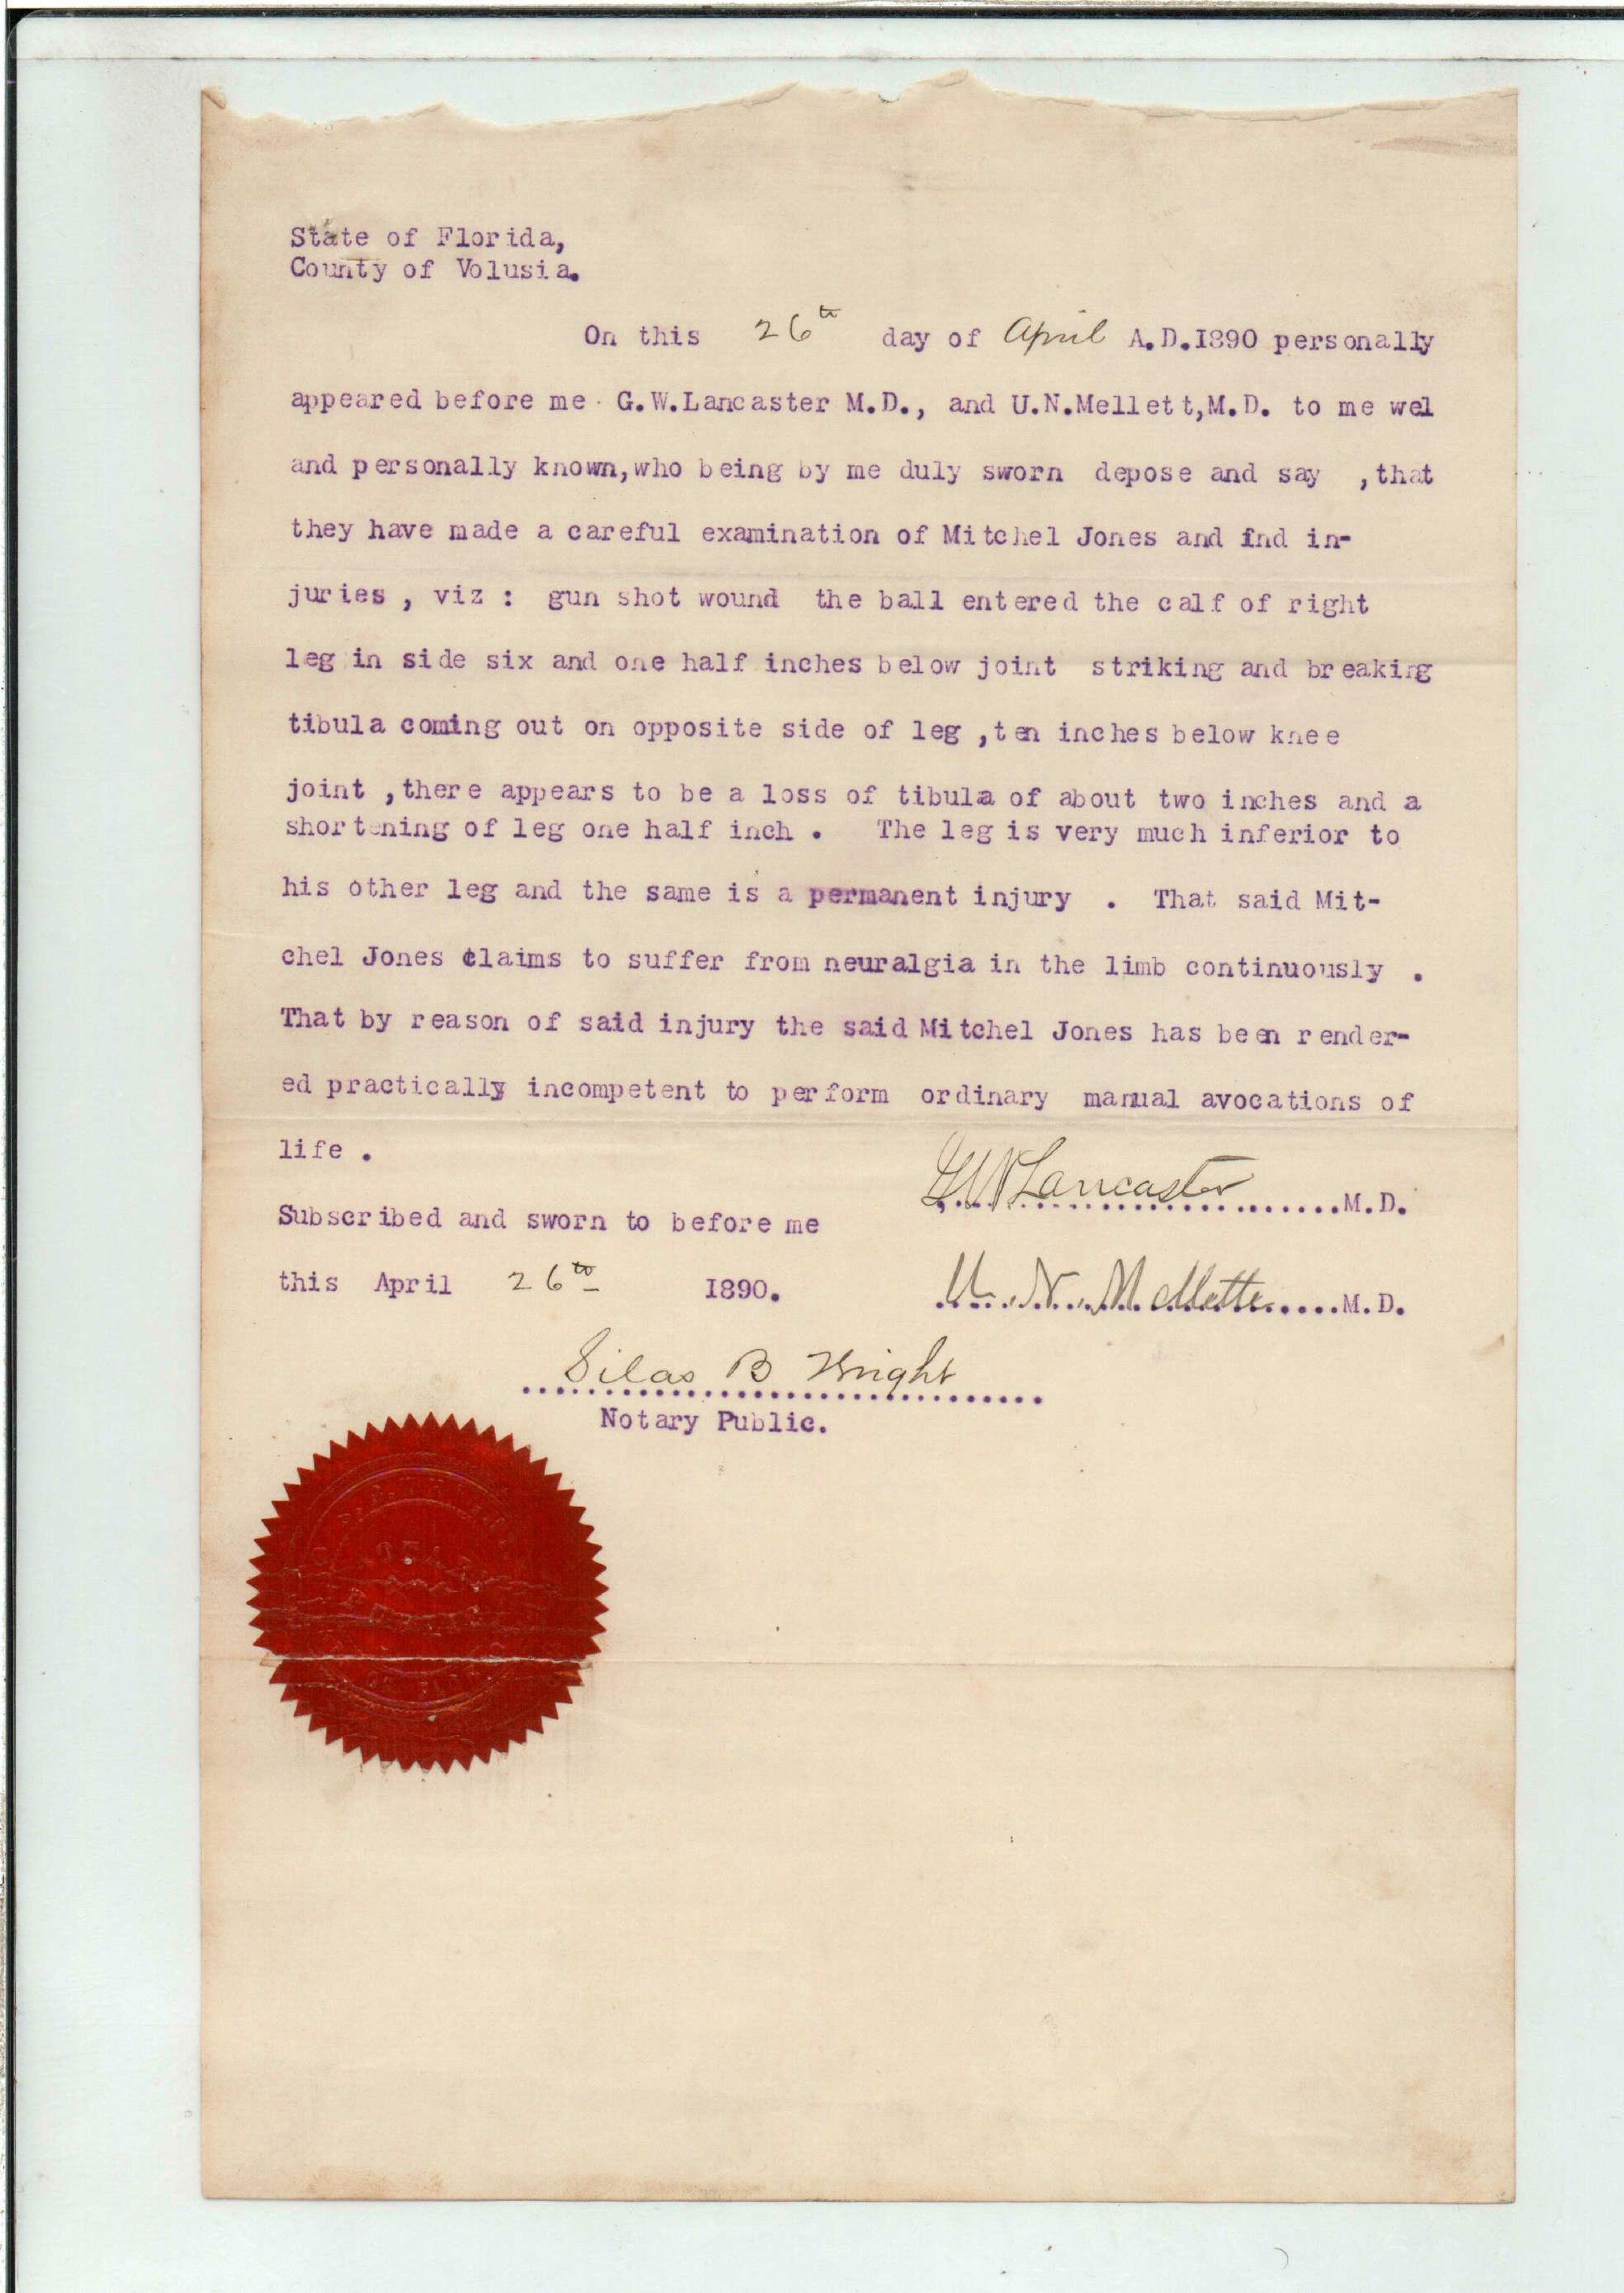 State of Florida,
County of Volusia.
On this 26th day of April A.D.1890 personally
appeared before me G.W.Lancaster M.D., and U.N.Mellett,M.D. to me wel
and personally known,who being by me duly sworn depose and say ,that
they have made a careful examination of Mitchel Jones and find in-
juries , viz : gun shot wound the ball entered the calf of right
leg in side six and one half inches below joint striking and breaking
tibula coming out on opposite side of leg ,ten inches below knee
joint ,there appears to be a loss of tibula of about two inches and a
shortening of leg one half inch . The leg is very much inferior to
his other leg and the same is a permanent injury . That said Mit-
chel Jones claims to suffer from neuralgia in the limb continuously .
That by reason of said injury the said Mitchel Jones has been render-
ed practically incompetent to perform ordinary manual avocations of
life .
GW Lancaster M.D.
Subscribed and sworn to before me
this April 26th 1890.
U. N. Mellette M.D.
Silas B Wright
Notary Public.